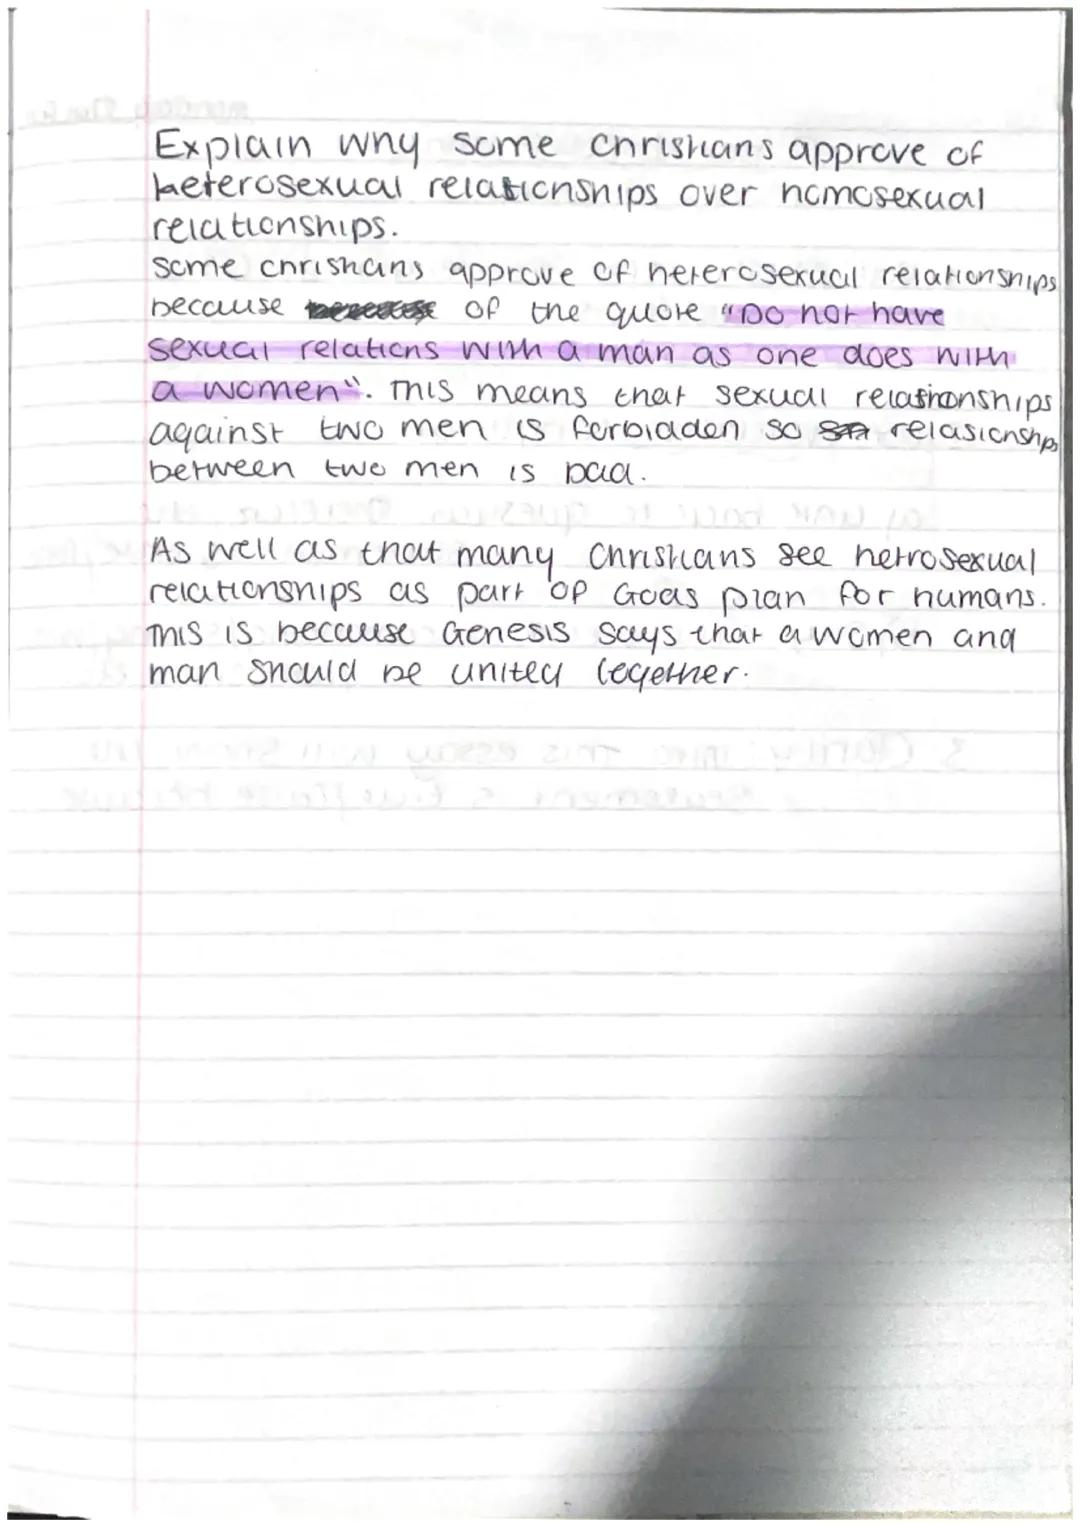 Explain why some christians approve of
heterosexual relationships over homosexual
relationships.
some christians approve of heterosexual relationships
because of the quote "Do not have
sexual relations with a man as one does with
a women". This means that sexual relationships
against two men is forbidden so relasionships
between two men is bad.
As well as that many Christians see hetrosexual
relationships as part of Gods plan for humans.
This is because Genesis says that a women and
man should be united together.